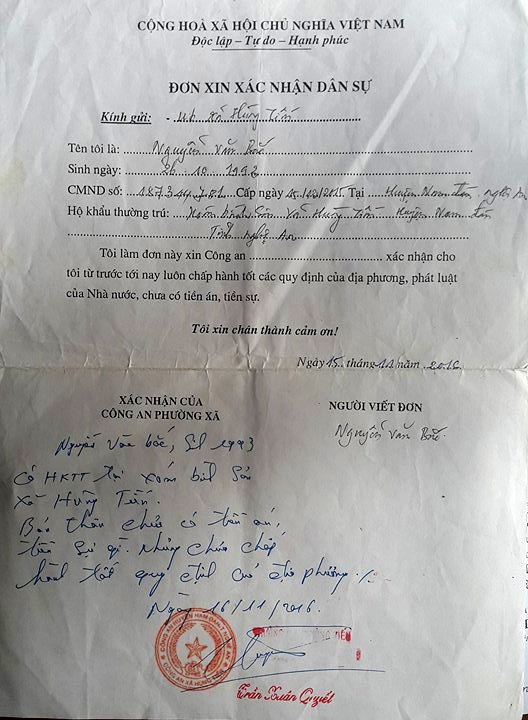 CỘNG HOÀ XÃ HỘI CHỦ NGHĨA VIỆT NAM
Độc lập – Tự do – Hạnh phúc
ĐƠN XIN XÁC NHẬN DÂN SỰ
Kính gửi: - UB xã Hưng Tiến
Tên tôi là: Nguyễn Văn Bắc
Sinh ngày: 26 . 10 . 1993
CMND số: Cấp ngày Tại Huyện Nam đàn, nghệ An
Hộ khẩu thường trú: Xóm Bình Sơn Xã Hưng Tiến Huyện Nam đàn
Tỉnh nghệ An
Tôi làm đơn này xin Công an xác nhận cho
tôi từ trước tới nay luôn chấp hành tốt các quy định của địa phương, phát luật
của Nhà nước, chưa có tiền án, tiền sự.
Tôi xin chân thành cảm ơn!
Ngày 15 tháng 11 năm 2016
XÁC NHẬN CỦA
CÔNG AN PHƯỜNG XÃ
NGƯỜI VIẾT ĐƠN
Nguyễn Văn Bắc
Nguyễn Văn bắc, SN 1993
Có HKTT tại xóm bình Sơn
Xã Hưng Tiến.
Bản thân chưa có tiền án,
tiền sự gì. chấp
hành tốt quy định của địa phương ./.
Ngày 16/11/2016.
CÔNG AN XÃ HƯNG TIẾN
Trần Xuân Quyết